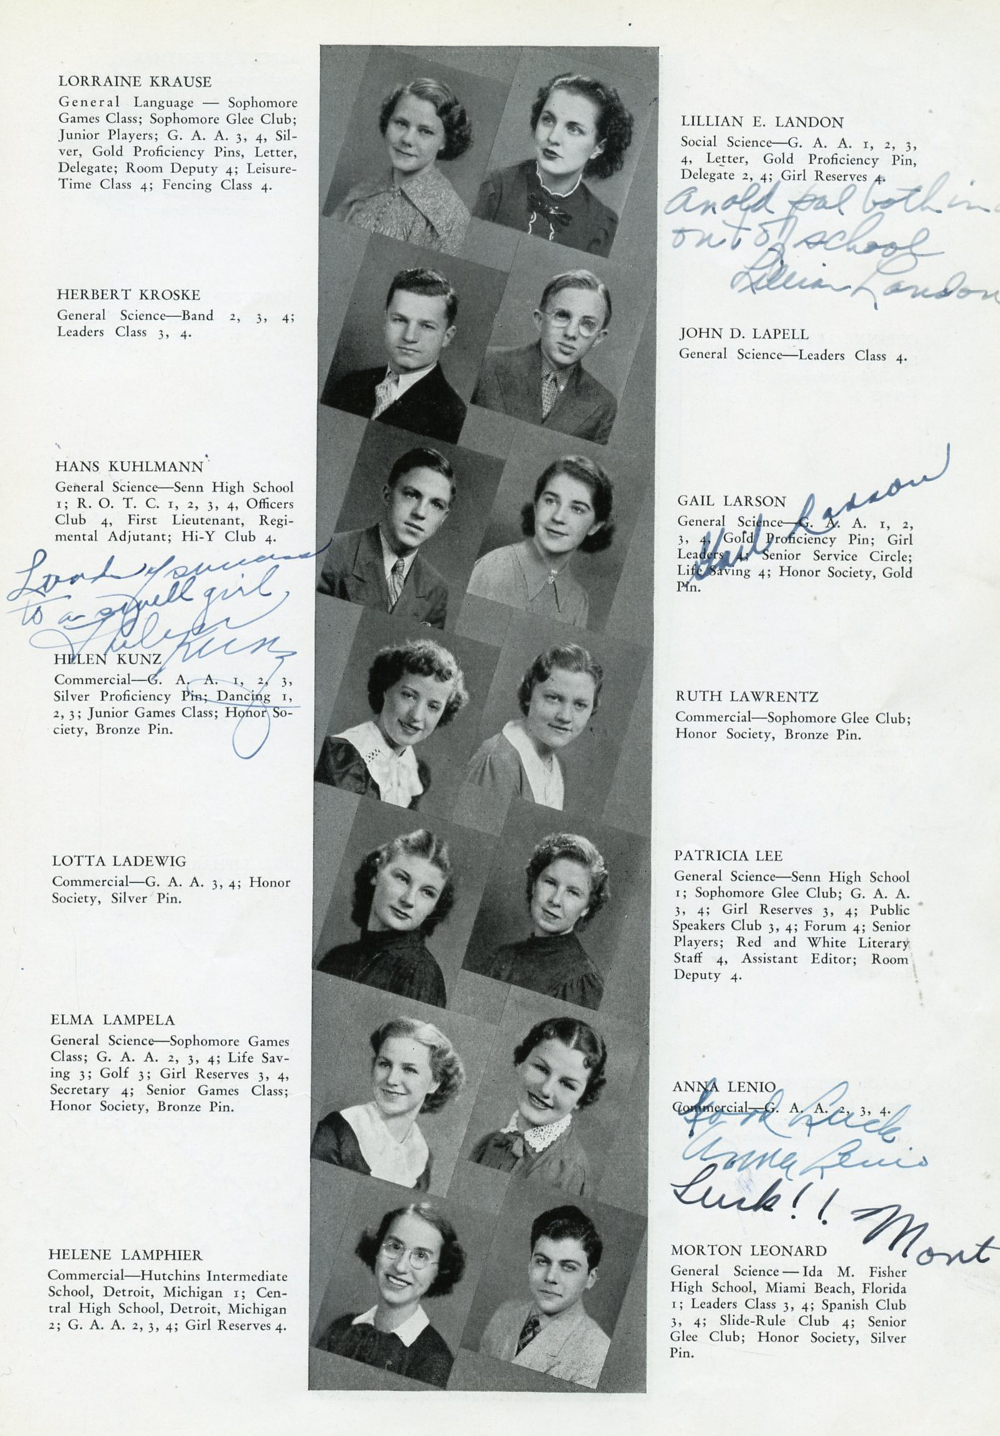 LORRAINE KRAUSE
General Language — Sophomore
Games Class; Sophomore Glee Club;
Junior Players; G. A. A. 3, 4, Sil-
ver, Gold Proficiency Pins, Letter,
Delegate; Room Deputy 4; Leisure-
Time Class 4; Fencing Class 4.
HERBERT KROSKE
General Science—Band 2, 3, 4;
Leaders Class 3, 4.
HANS KUHLMANN
General Science—Senn High School
1; R. O. T. C. 1, 2, 3, 4, Officers
Club 4, First Lieutenant, Regi-
mental Adjutant; Hi-Y Club 4.
to a swell girl,
Helen Kunz
HELEN KUNZ
Commercial—G. A. A. 1, 2, 3,
Silver Proficiency Pin; Dancing 1,
2, 3; Junior Games Class; Honor So-
ciety, Bronze Pin.
LOTTA LADEWIG
Commercial—G. A. A. 3, 4; Honor
Society, Silver Pin.
ELMA LAMPELA
General Science—Sophomore Games
Class; G. A. A. 2, 3, 4; Life Sav-
ing 3; Golf 3; Girl Reserves 3, 4,
Secretary 4; Senior Games Class;
Honor Society, Bronze Pin.
HELENE LAMPHIER
Commercial—Hutchins Intermediate
School, Detroit, Michigan 1; Cen-
tral High School, Detroit, Michigan
2; G. A. A. 2, 3, 4; Girl Reserves 4.
LILLIAN E. LANDON
Social Science—G. A. A. 1, 2, 3,
4, Letter, Gold Proficiency Pin,
Delegate 2, 4; Girl Reserves 4.
An old pal both in
out of school
Lillian Landon
JOHN D. LAPELL
General Science—Leaders Class 4.
GAIL LARSON
General Science—G. A. A. 1, 2,
3, 4, Gold Proficiency Pin; Girl
Leaders 4; Senior Service Circle;
Life Saving 4; Honor Society, Gold
Pin.
Gail Larson
RUTH LAWRENTZ
Commercial—Sophomore Glee Club;
Honor Society, Bronze Pin.
PATRICIA LEE
General Science—Senn High School
1; Sophomore Glee Club; G. A. A.
3, 4; Girl Reserves 3, 4; Public
Speakers Club 3, 4; Forum 4; Senior
Players; Red and White Literary
Staff 4, Assistant Editor; Room
Deputy 4.
ANNA LENIO
Commercial—G. A. A. 2, 3, 4.
Good Luck
Anna Lenio
Luck!! Mont
MORTON LEONARD
General Science—Ida M. Fisher
High School, Miami Beach, Florida
1; Leaders Class 3, 4; Spanish Club
3, 4; Slide-Rule Club 4; Senior
Glee Club; Honor Society, Silver
Pin.